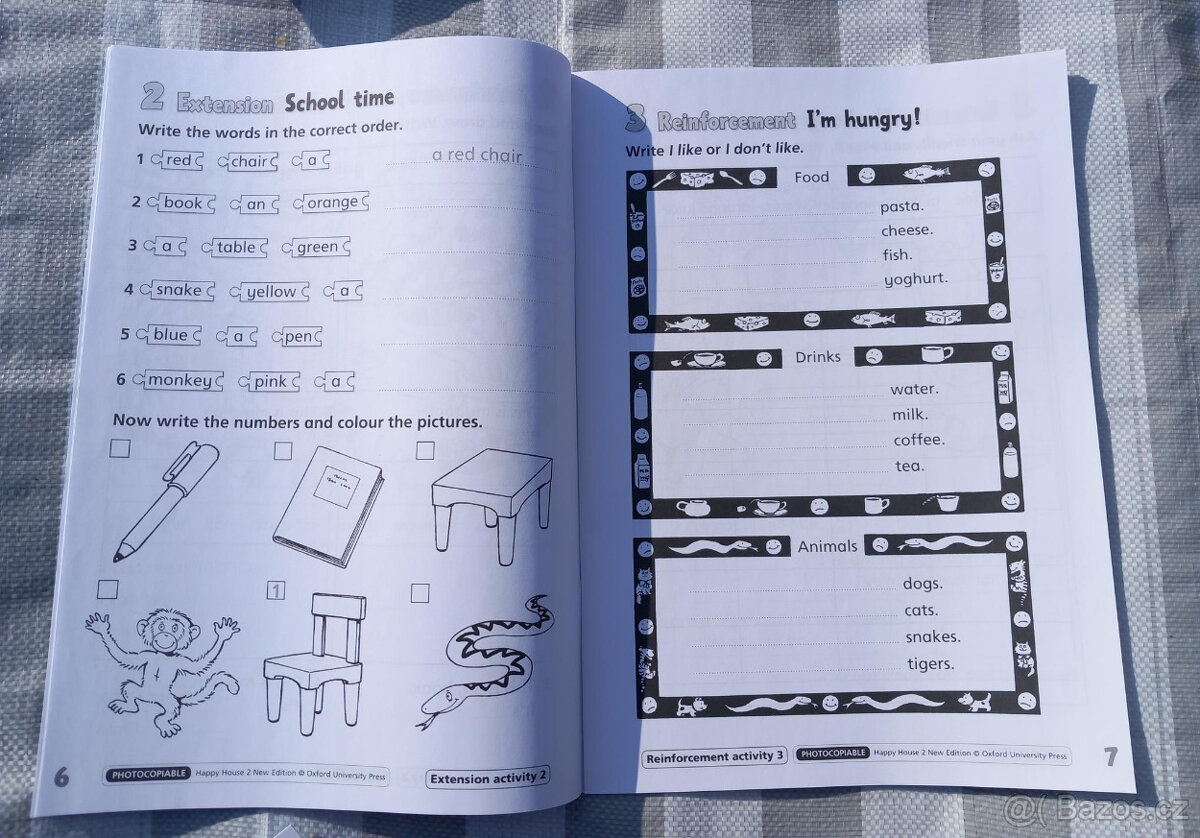 2 Extension School time
Write the words in the correct order.
1 red chair a a red chair
2 book an orange
3 a table green
4 snake yellow a
5 blue a pen
6 monkey pink a
Now write the numbers and colour the pictures.
1
6 PHOTOCOPIABLE Happy House 2 New Edition © Oxford University Press Extension activity 2
3 Reinforcement I'm hungry!
Write I like or I don't like.
Food
pasta.
cheese.
fish.
yoghurt.
Drinks
water.
milk.
coffee.
tea.
Animals
dogs.
cats.
snakes.
tigers.
Reinforcement activity 3 PHOTOCOPIABLE Happy House 2 New Edition © Oxford University Press 7
Bazos.cz